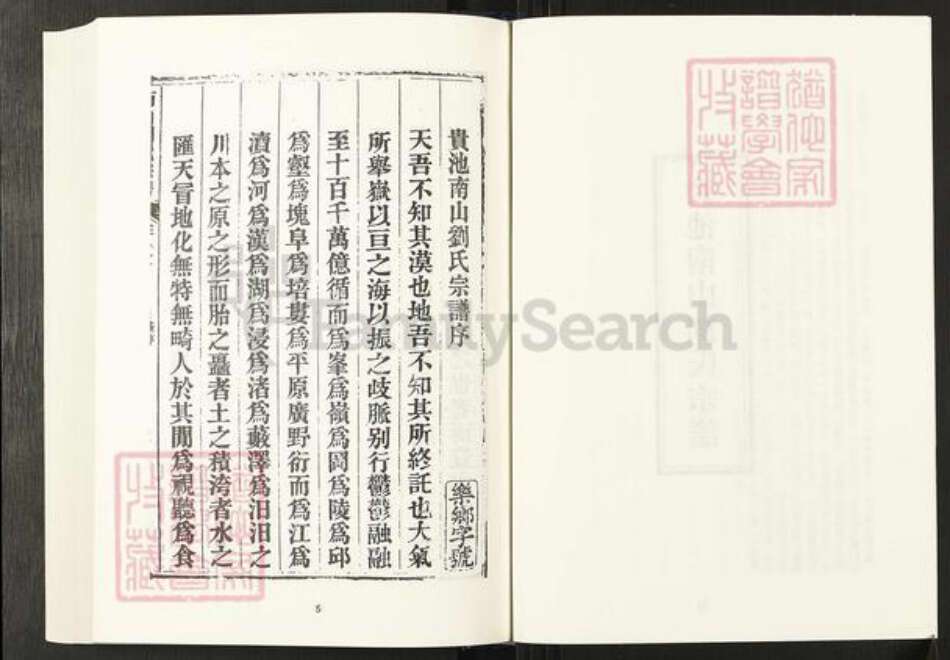 貴池南山劉氏宗譜序
樂鄉字號
天吾不知其漠也地吾不知其所終託也大氣
所舉嶽以亘之海以振之歧脈別行鬱鬱融融
至十百千萬億循而爲峯爲嶺爲岡爲陵爲邱
爲壑爲塊阜爲培塿爲平原廣野衍而爲江爲
瀆爲河爲漢爲湖爲浸爲渚爲藪澤爲汨汨之
川本之原之形而胎之矗者土之積洿者水之
匯天冒地化無特無畸人於其閒爲視聽爲食
5
FamilySearch
猶他家
譜學會
收藏